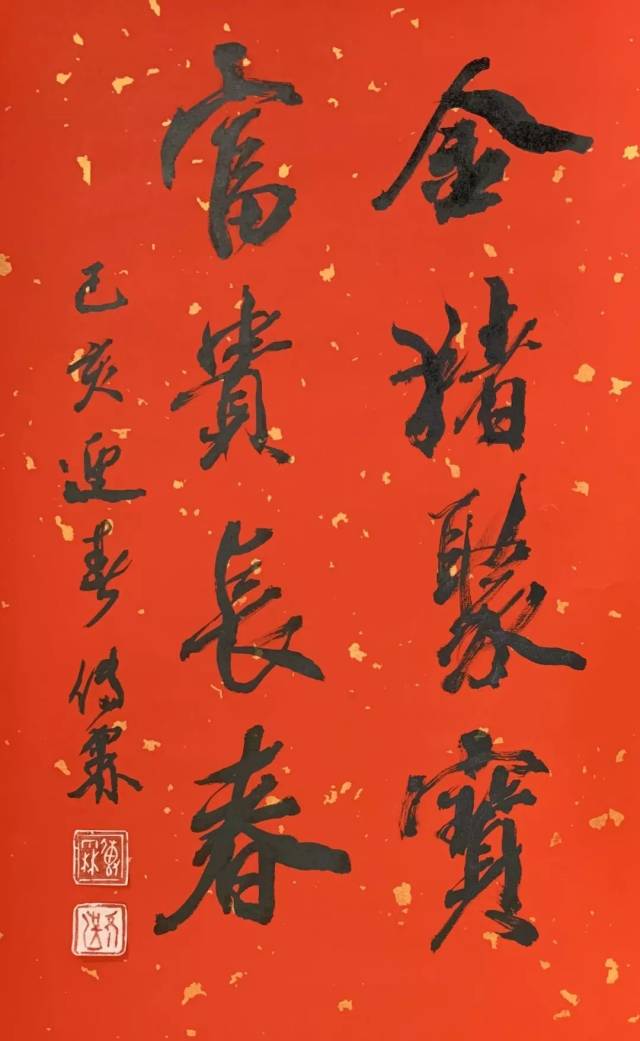 金猪聚寶
富貴長春
己亥迎春 傳霖